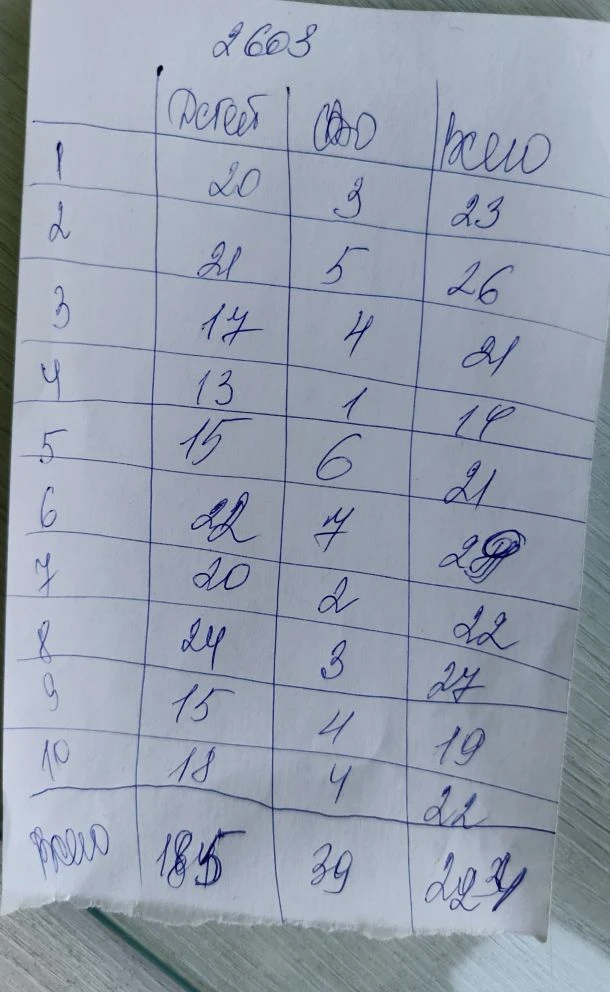 2603
Детей СВО Всего
1 20 3 23
2 21 5 26
3 17 4 21
4 13 1 14
5 15 6 21
6 22 7
7 20 2 22
8 24 3 27
9 15 4 19
10 18 4 22
Всего 185 39 224